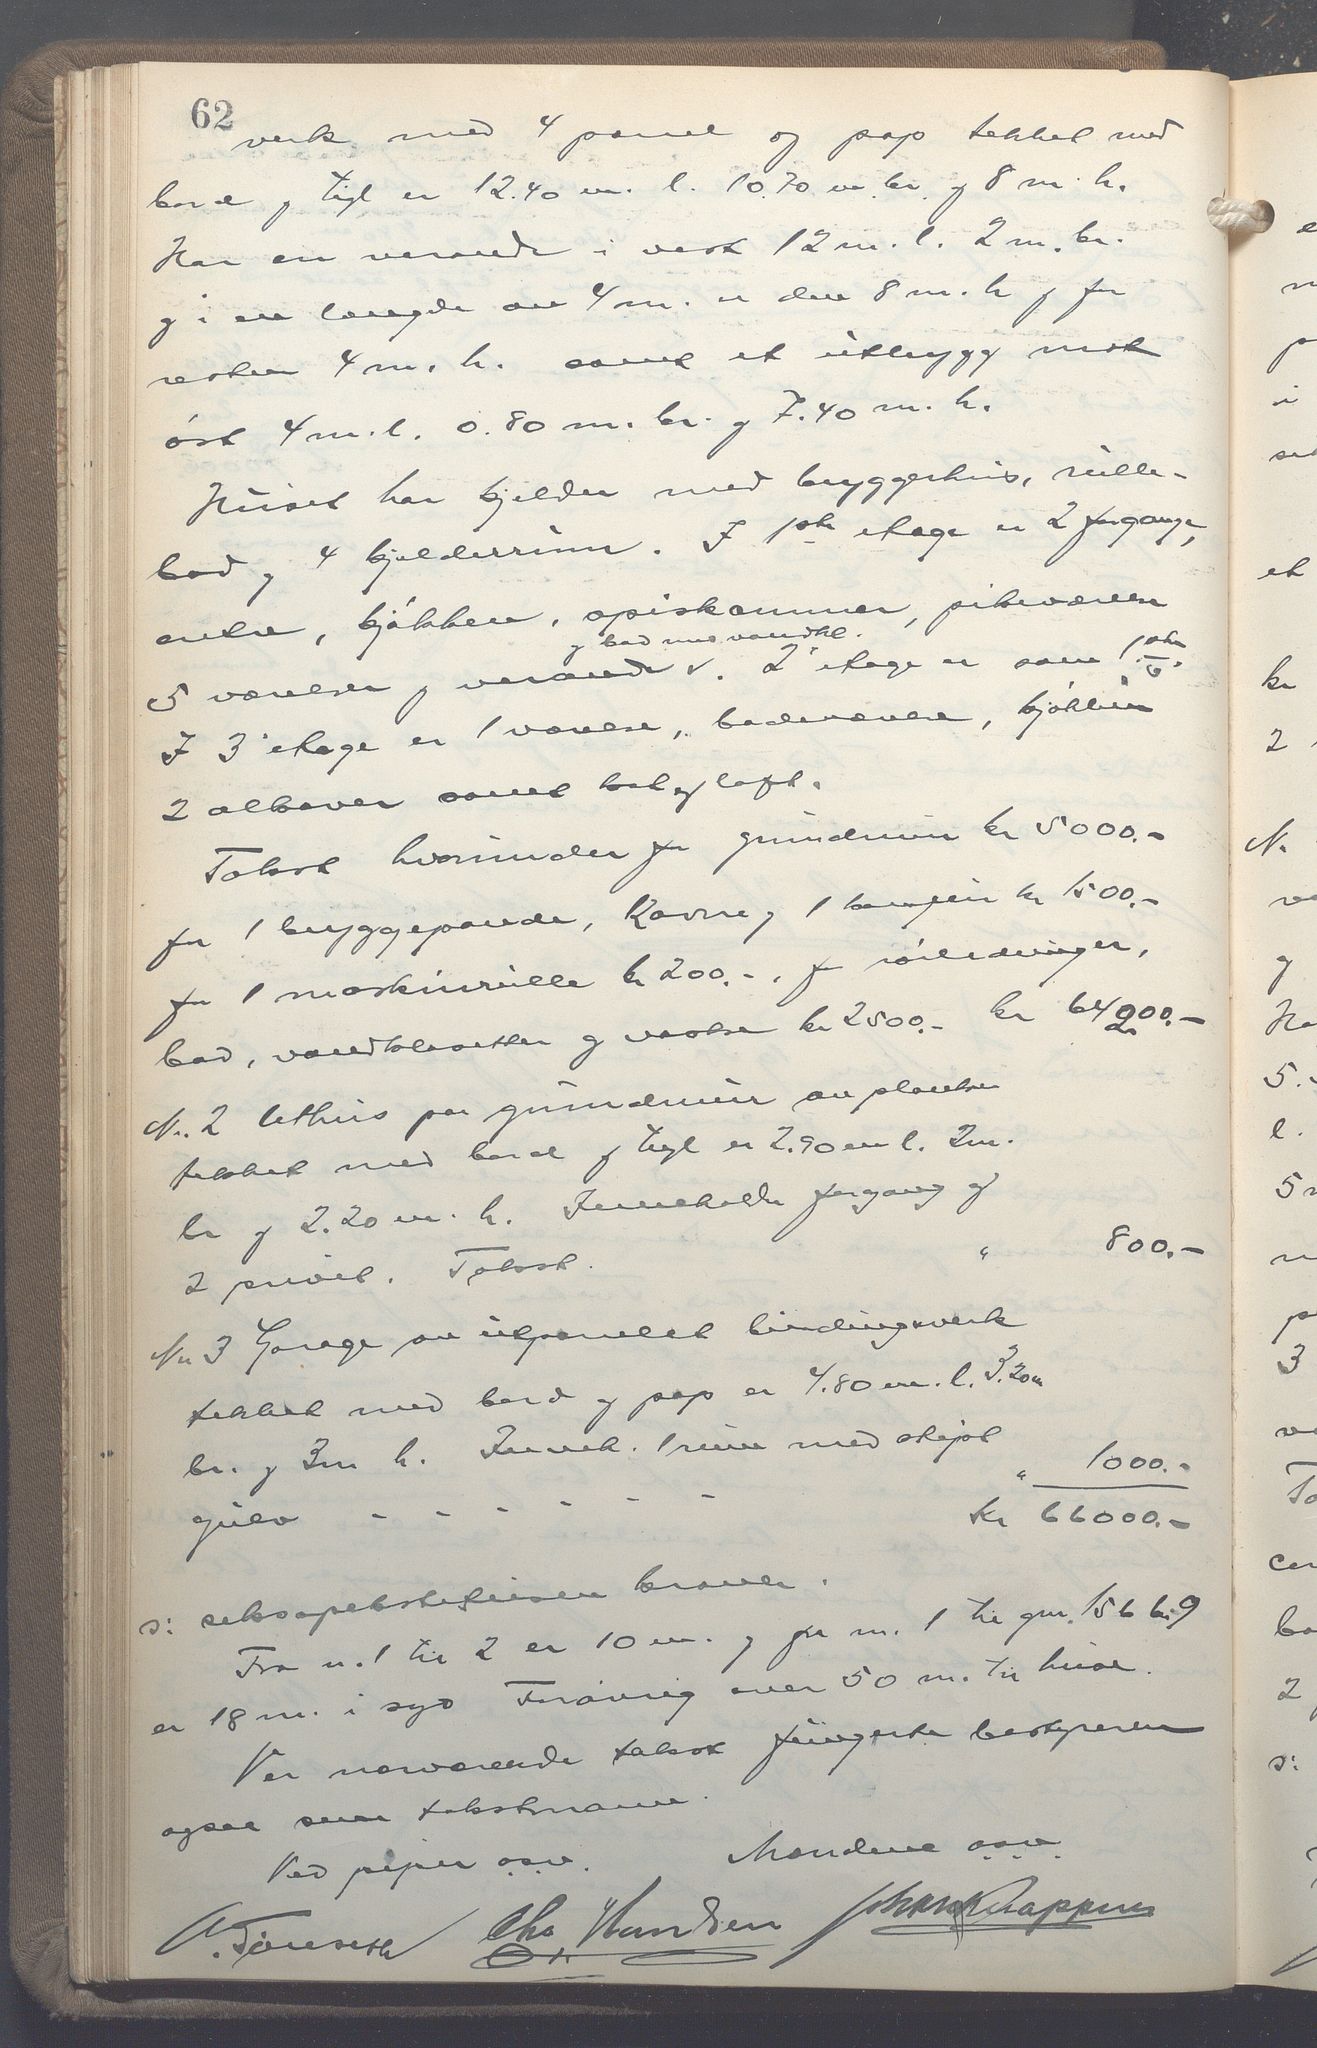 62
verk med 4 panel og pap tekket med
bord og tegl er 12.40 m. l. 10.70 m. br. og 8 m. h.
Har en veranda i vest 12 m. l. 2 m. br.
og i en længde av 4 m. er den 8 m. h og for
resten 4 m. h. samt et utbygg mot
øst 4 m. l. 0.80 m. br. og 7.40 m. h.
Huset har kjelder med bryggerhus, rulle-
bod og 4 kjelderrum. I 1ste etage er 2 forgange,
entre, kjøkken, spiskammer, pikeværelse
og bad med vandkl.
5 værelser og veranda v. 2' etage er som 1ste
I 3' etage er 1 værelse, badeværelse, kjøkken
2 alkover samt kot og loft.
Takst hvorunder for grundmur kr 5000.-
for 1 bryggepande, Kavne og 1 kr 1500.-
for 1 maskinrulle kr 200.-, for rørledninger,
bad, vandklosetter og vaske kr 2500.- kr 64200.-
Nr. 2 Uthus paa grundmur av planker
tekket med bord og tegl er 2.90 m l. 2 m.
br og 2.20 m. h. Indeholder forgang og
2 privet. Takst. " 800.-
Nr 3 Garage av utpanelet bindingsverk
tekket med bord og pap er 4.80 m. l. 3.20 m
br. og 3 m h. Indeh. 1 rum med støpt
gulv - - - - - - " 1000.-
Kr 66000.-
s: seksogsekstitusen kroner.
Fra n. 1 til 2 er 10 m. og fra n. 1 til gnr. 156 br 9
er 18 m. i syd Forøvrig over 50 m. til huse.
Ved nærværende takst fungerte bestyreren
ogsaa som takstmann.
Ved piper o.s.v. Mændene o.s.v.
Chr Knudsen